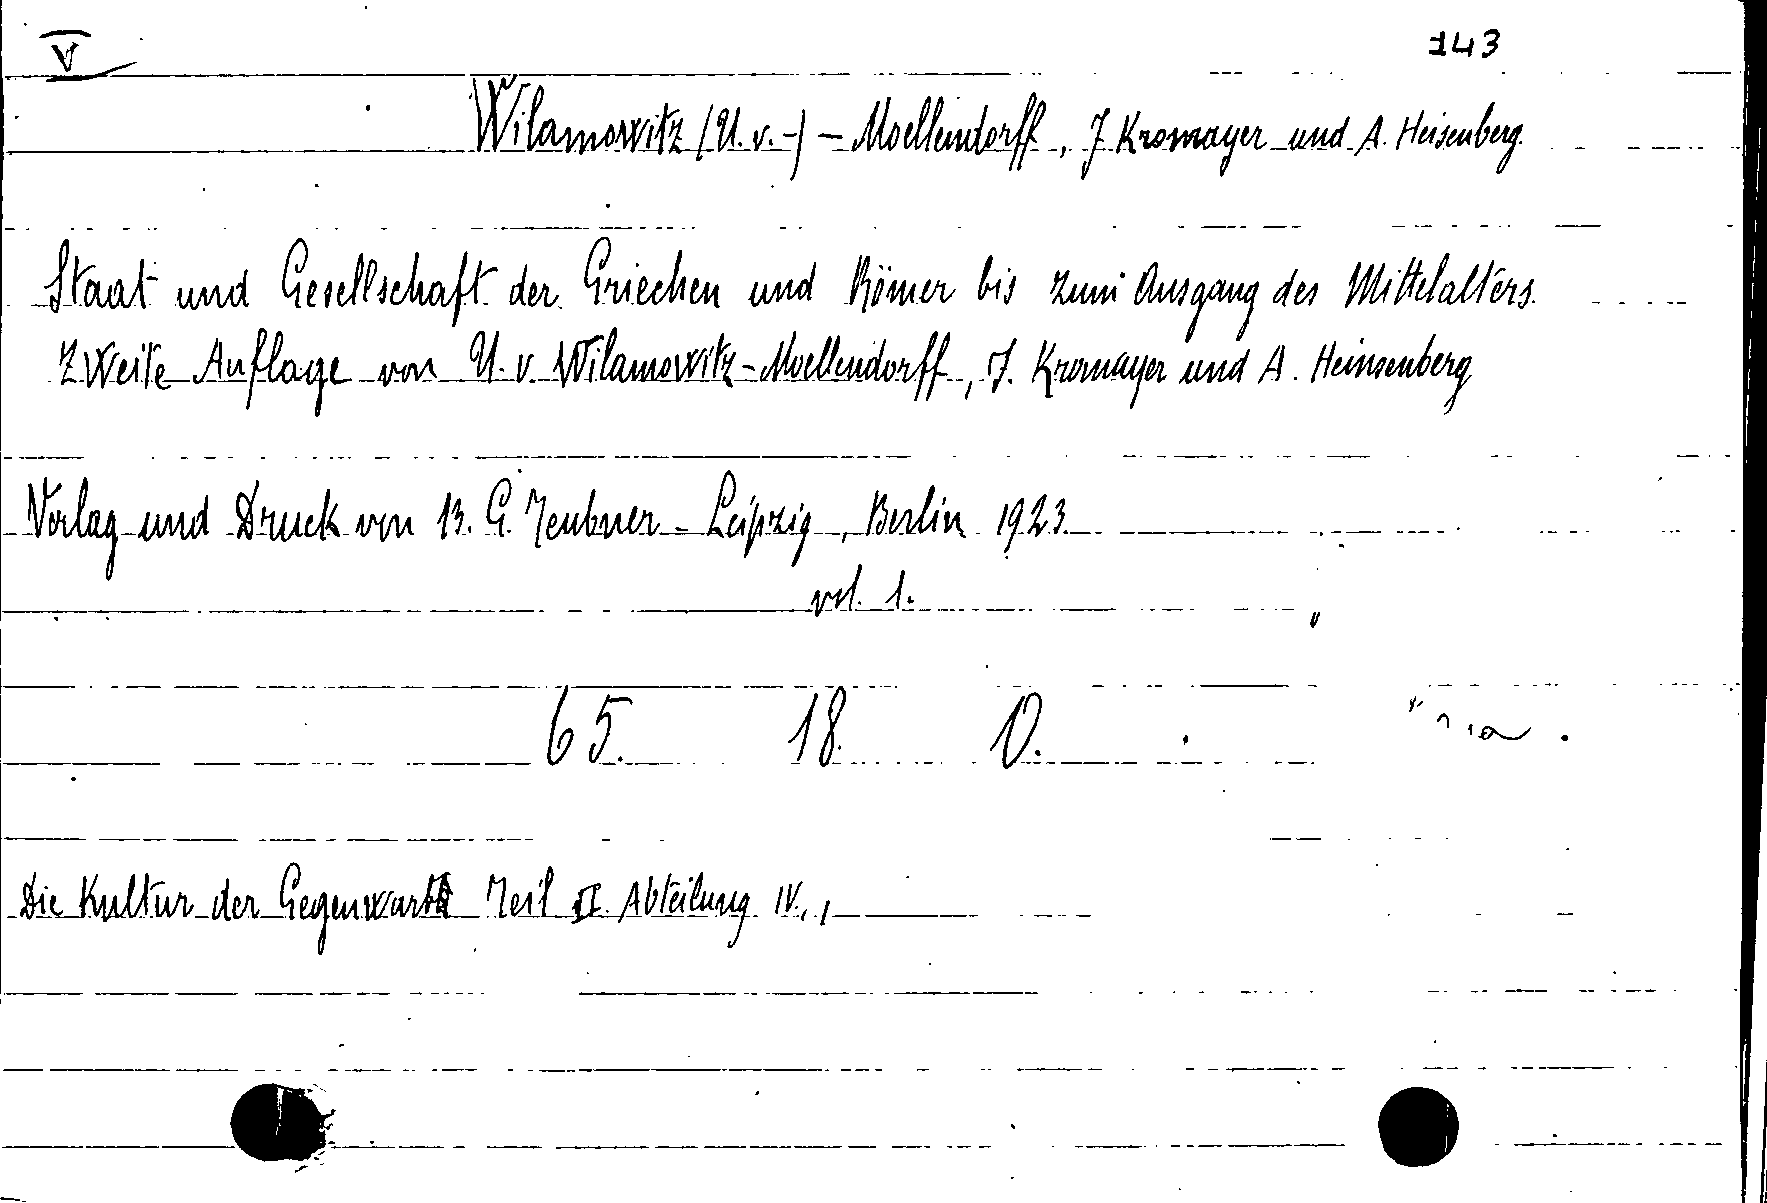 V 143
Wilamowitz (U. v. -) - Moellendorff, J Kromayer und A. Heisenberg.
Staat und Gesellschaft der Griechen und Römer bis zum Ausgang des Mittelalters.
Zweite Auflage von U. v. Wilamowitz-Moellendorff, J. Kromayer und A. Heinsenberg
Verlag und Druck von B. G. Teubner - Leipzig, Berlin 1923.
vol. 1.
65. 18. D.
Die Kultur der Gegenwart Teil II Abteilung IV., 1